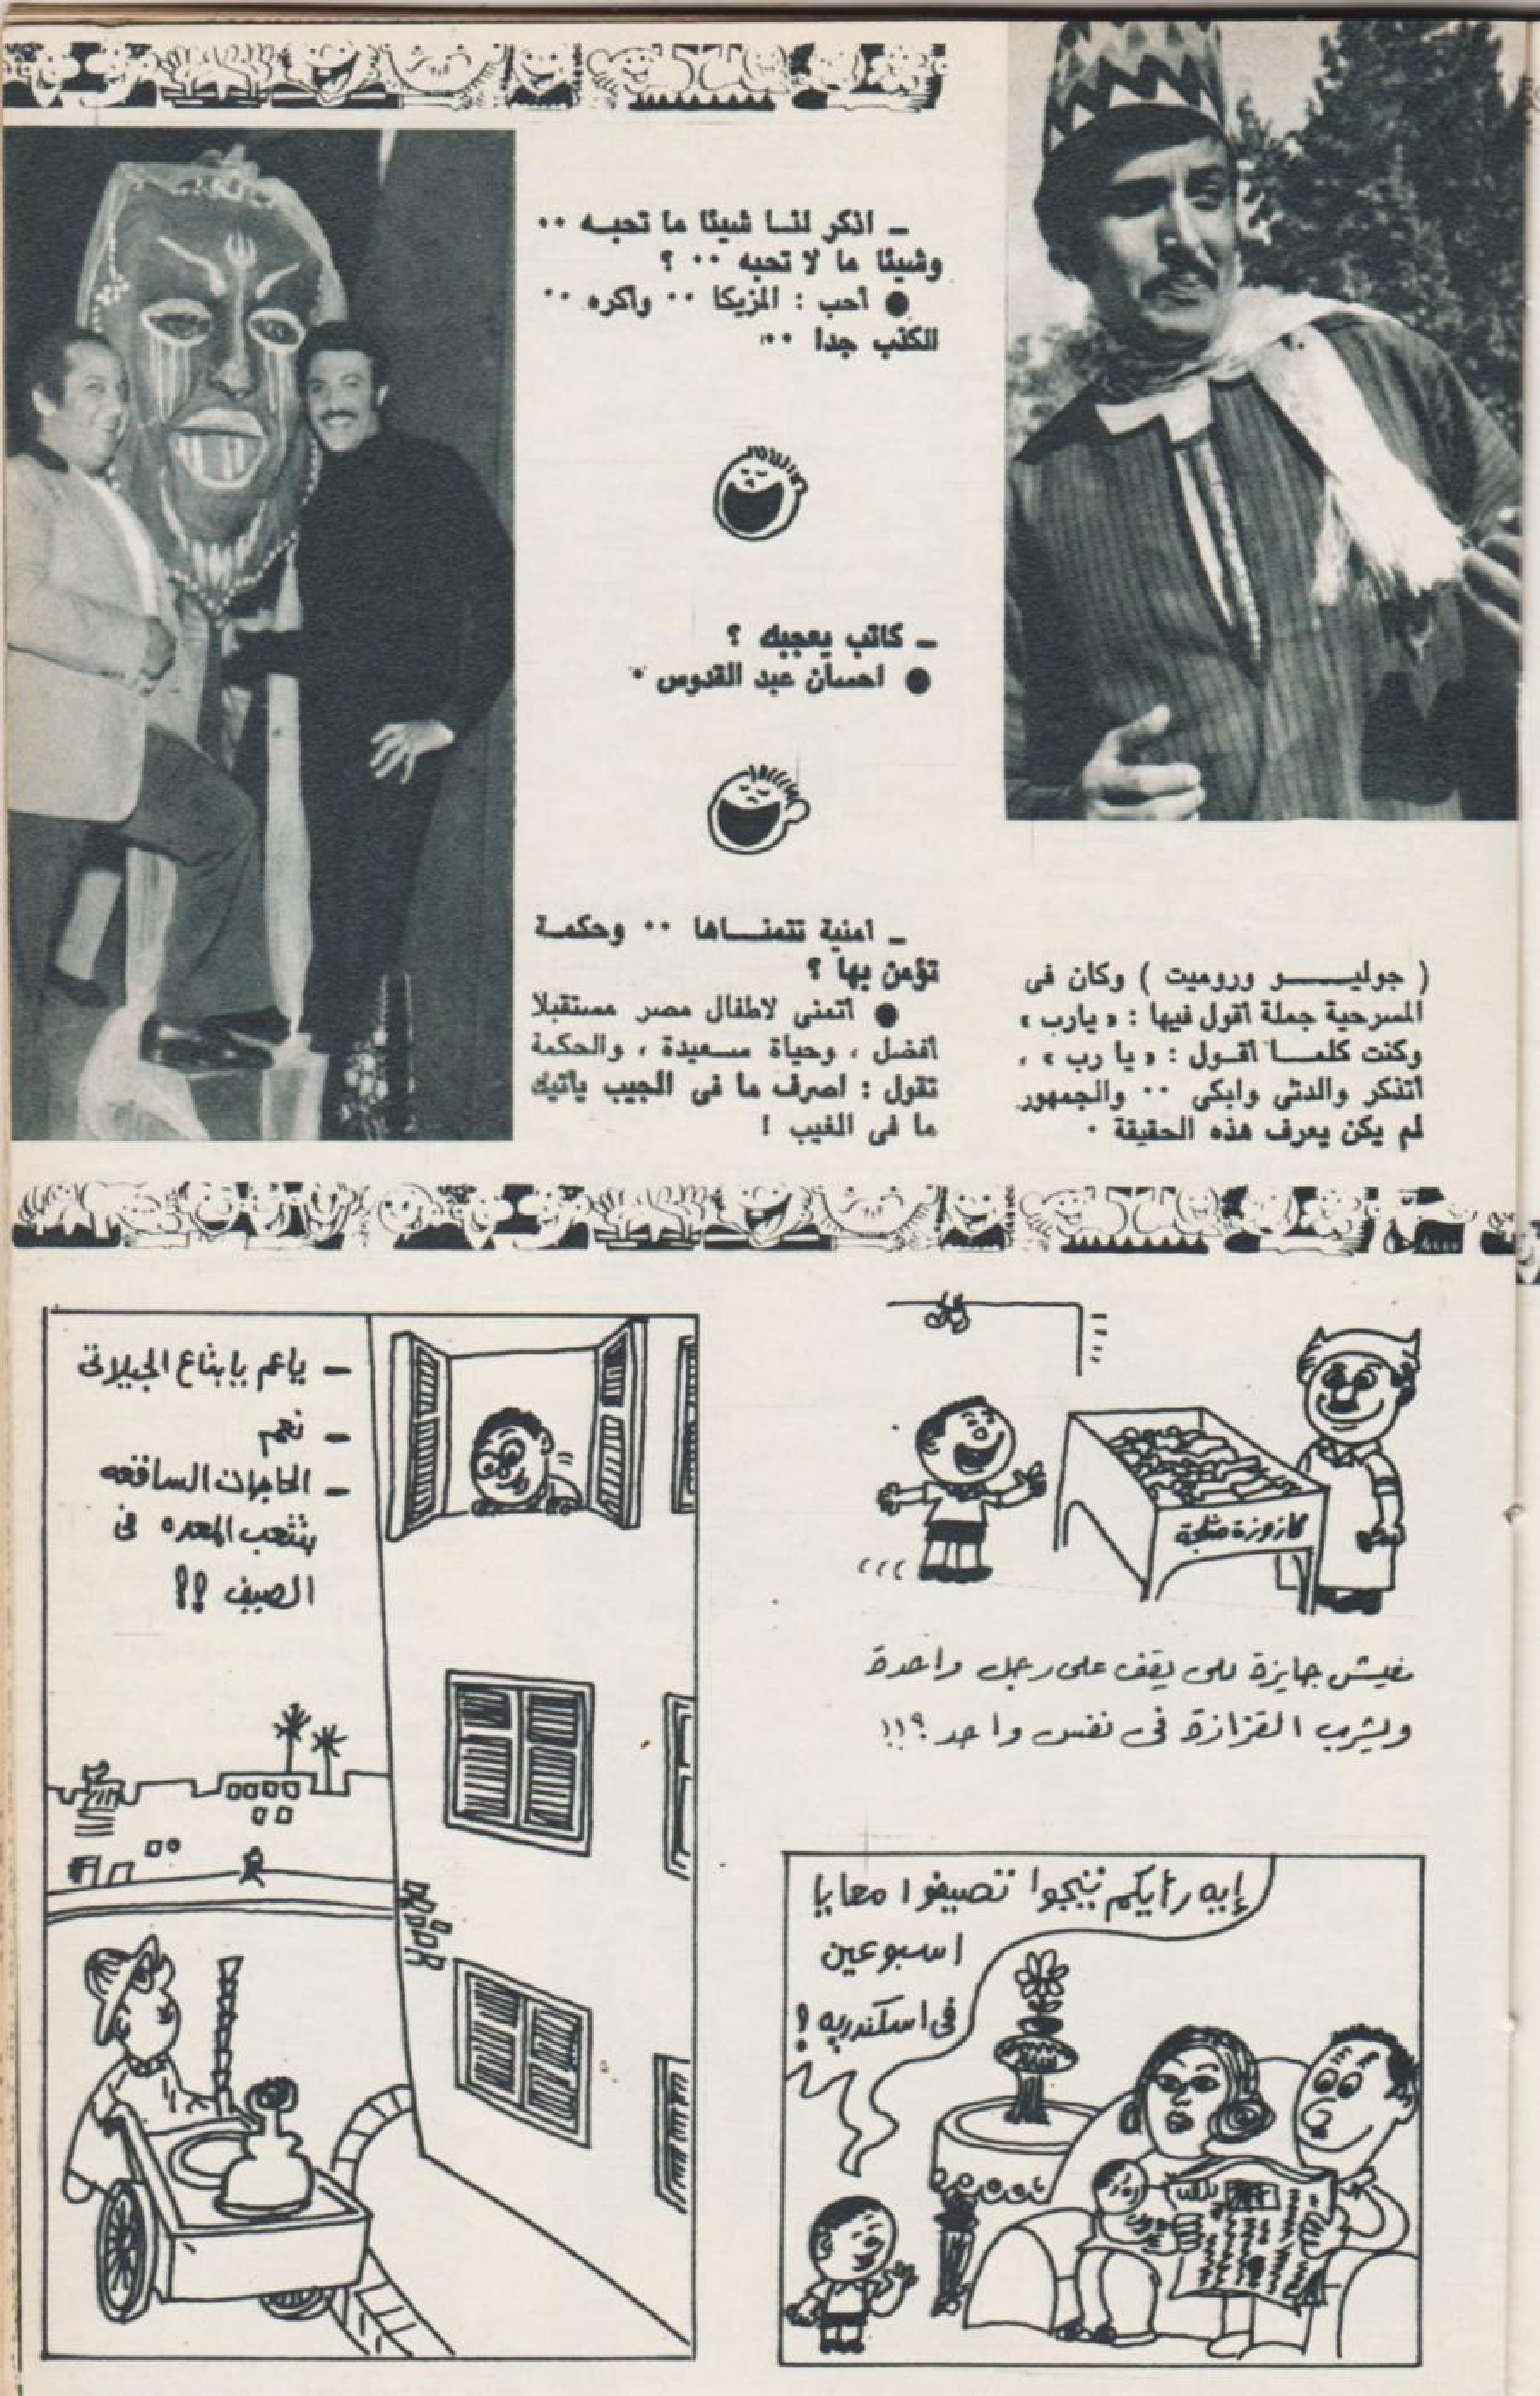 ( جوليــــو وروميت ) وكان فى
المسرحية جملة أقول فيها : « يارب »
وكنت كلمــا أقــول : « يا رب » ،
أتذكر والدتى وابكى ٠٠ والجمهور
لم يكن يعرف هذه الحقيقة ٠
ـ اذكر لنــا شيئا ما تحبــه ٠٠
وشيئا ما لا تحبه ٠٠ ؟
● أحب : المزيكا ٠٠ وأكره ٠٠
الكذب جدا ٠٠
ـ كاتب يعجبك ؟
● احسان عبد القدوس ٠
ـ أمنية تتمنــاها ٠٠ وحكمــة
تؤمن بها ؟
● أتمنى لاطفال مصر مستقبلا
أفضل ، وحياة ســعيدة ، والحكمة
تقول : اصرف ما فى الجيب يأتيك
ما فى الغيب !
كازوزة مثلجة
مفيش جايزة للى يقف على رجل واحدة
ويشرب القزازة فى نفس واحد ؟!!
ـ ياعم يا بتاع الجيلاتى
ـ نعم
ـ الحاجات الساقعه
بتتعب المعده فى
الصيف !!
إيه رأيكم تيجوا تصيفوا معايا
اسبوعين
فى اسكندريه ؟